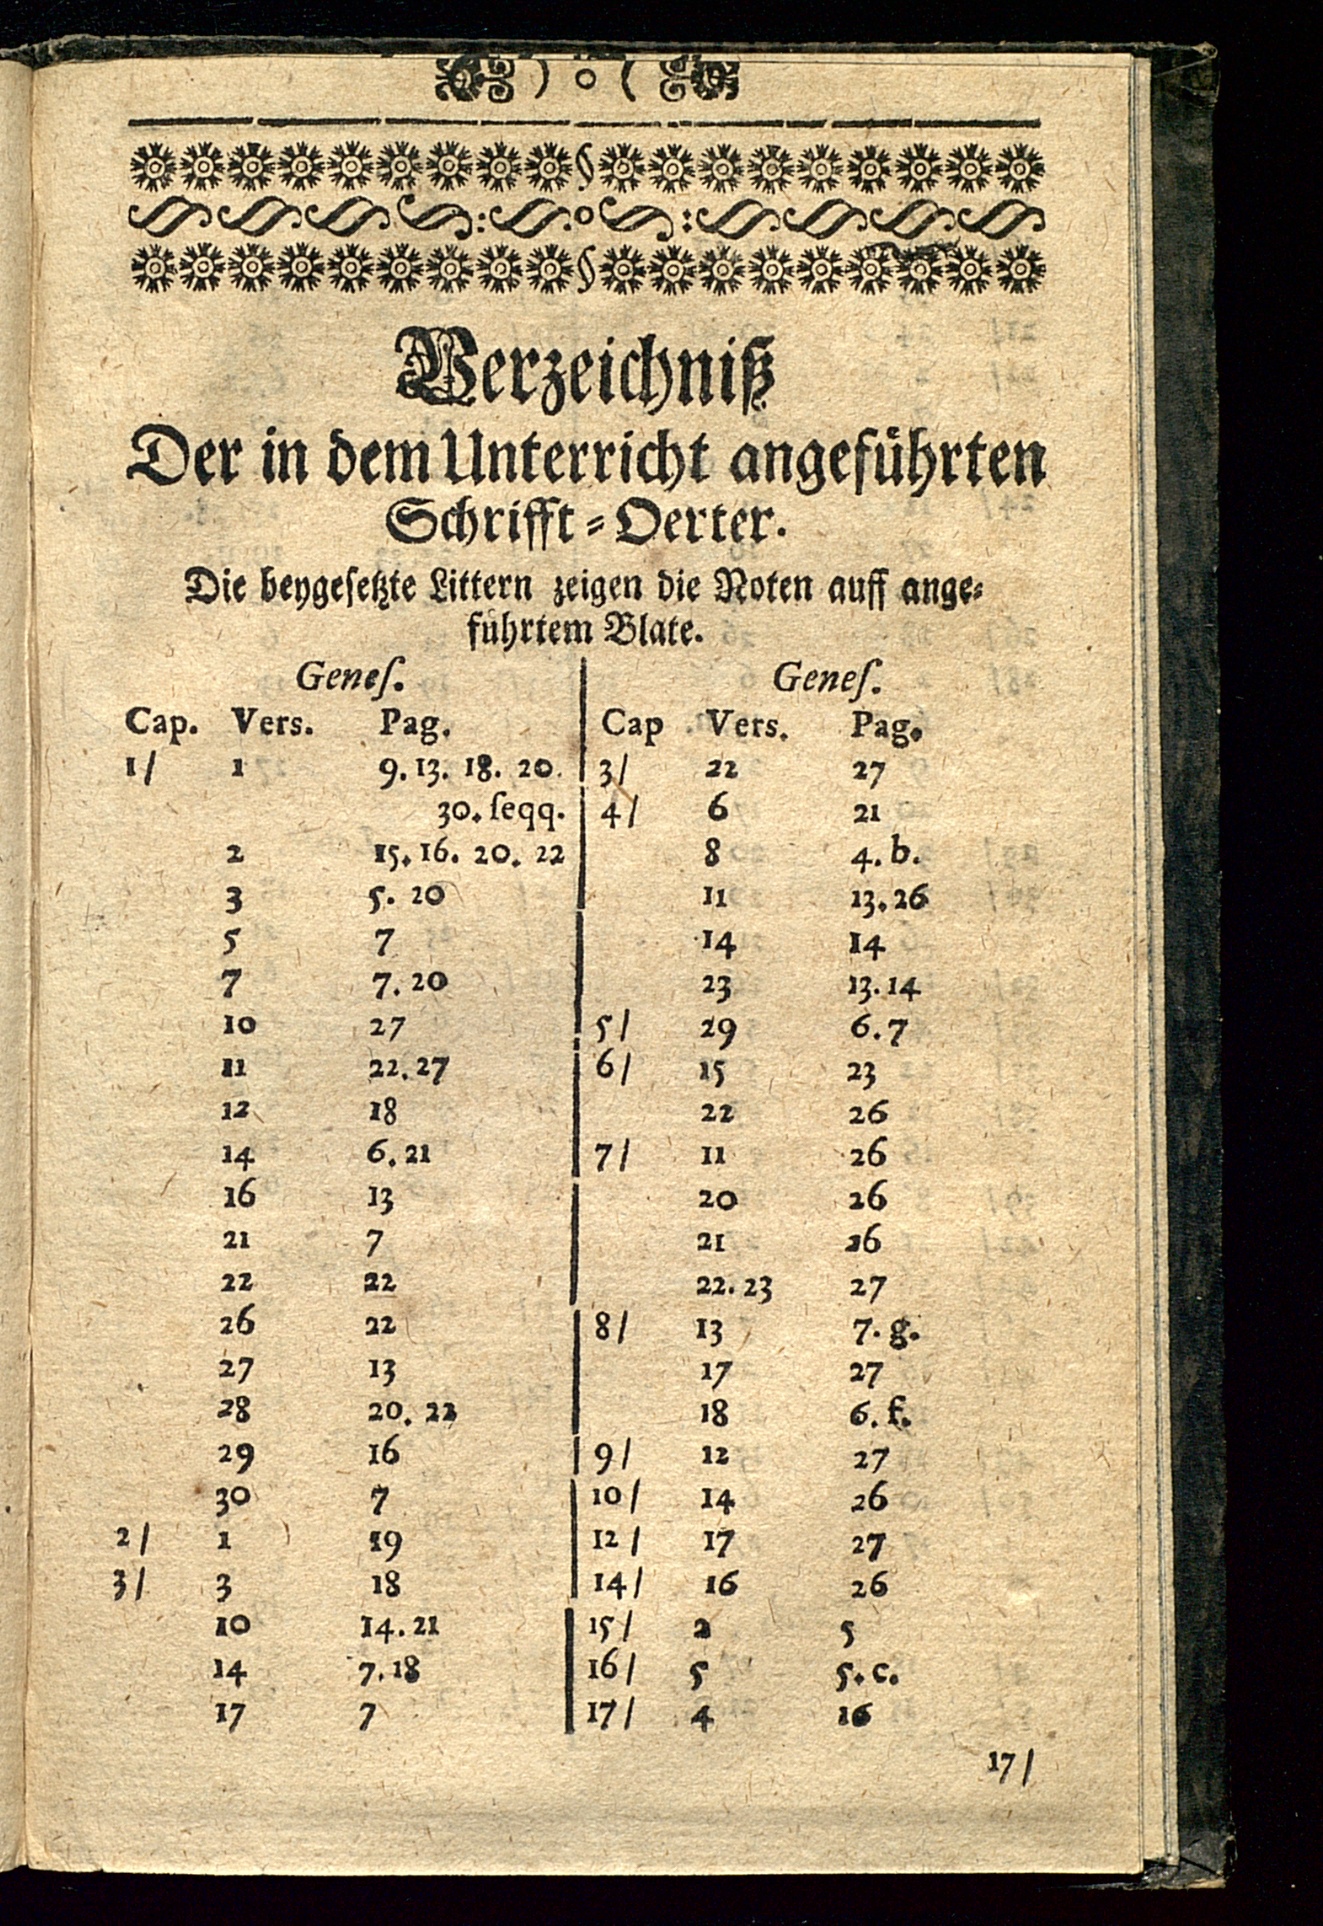 ) o (
Verzeichniß
Der in dem Unterricht angeführten
Schrifft-Oerter.
Die beygesetzte Littern zeigen die Noten auff ange-
führtem Blate.
Genes.
Cap. Vers. Pag.
1/ 1 9. 13. 18. 20.
30. seqq.
2 15. 16. 20. 22
3 5. 20
5 7
7 7. 20
10 27
11 22. 27
12 18
14 6. 21
16 13
21 7
22 22
26 22
27 13
28 20. 22
29 16
30 7
2/ 1 19
3/ 3 18
10 14. 21
14 7. 18
17 7
Genes.
Cap Vers. Pag.
3/ 22 27
4/ 6 21
8 4. b.
11 13. 26
14 14
23 13. 14
5/ 29 6. 7
6/ 15 23
22 26
7/ 11 26
20 26
21 26
22. 23 27
8/ 13 7. g.
17 27
18 6. f.
9/ 12 27
10/ 14 26
12/ 17 27
14/ 16 26
15/ 2 5
16/ 5 5. c.
17/ 4 16
17/